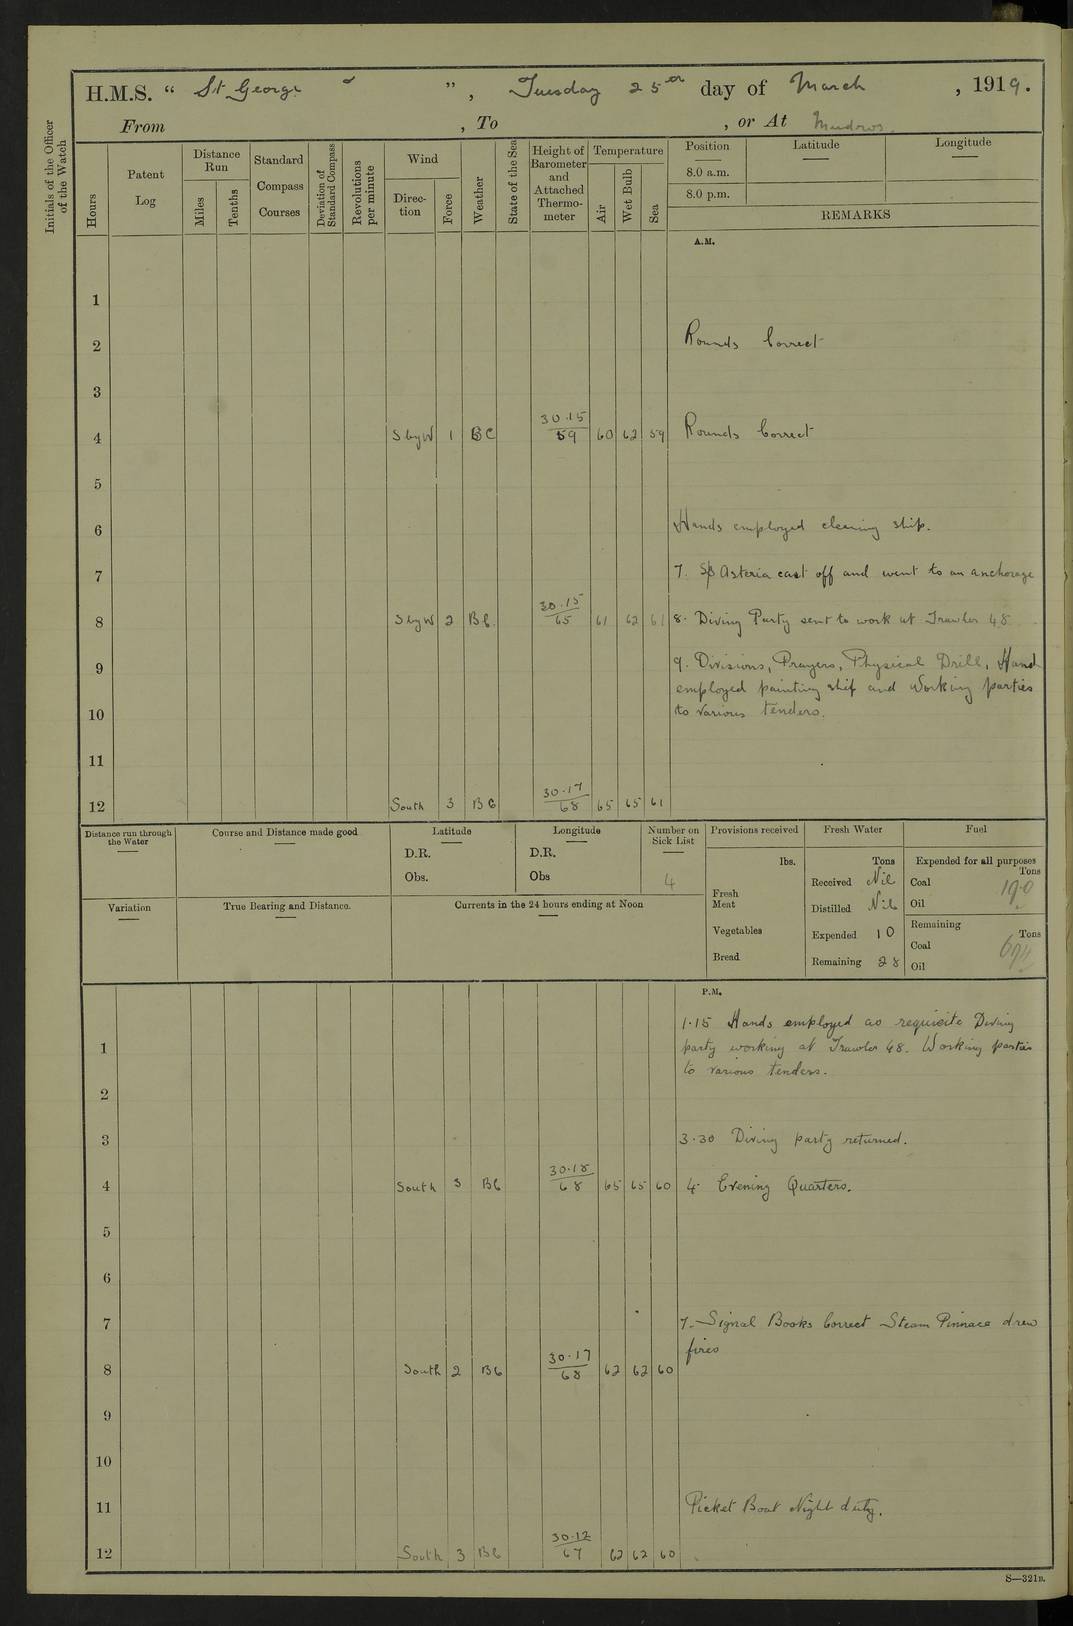 H.M.S. “ St George ” , Tuesday 25th day of March , 1919.
From , To , or At Mudros
Initials of the Officer of the Watch
Hours
Patent Log
Distance Run
Miles
Tenths
Standard Compass Courses
Deviation of Standard Compass
Revolutions per minute
Wind
Direction
Force
Weather
State of the Sea
Height of Barometer and Attached Thermometer
Temperature
Air
Wet Bulb
Sea
Position
8.0 a.m.
8.0 p.m.
Latitude
Longitude
REMARKS
A.M.
1
2 Rounds Correct
3
4 S by W 1 BC 30.15 / 59 60 62 59 Rounds Correct
5
6 Hands employed cleaning ship.
7 7. Asteria cast off and went to an anchorage
8 S by W 2 BC. 30.15 / 65 61 62 61 8. Diving Party sent to work at Trawler 48
9 9. Divisions, Prayers, Physical Drill, Hand
employed painting ship and Working parties
10 to various tenders.
11
12 South 3 BC 30.17 / 68 65 65 61
Distance run through the Water
Course and Distance made good
Latitude
D.R.
Obs.
Longitude
D.R.
Obs
Number on Sick List
4
Provisions received
lbs.
Fresh Meat
Vegetables
Bread
Fresh Water
Tons
Received Nil
Distilled Nil
Expended 10
Remaining 28
Fuel
Expended for all purposes
Tons
Coal 190
Oil
Remaining
Tons
Coal
Oil
Variation
True Bearing and Distance.
Currents in the 24 hours ending at Noon
P.M.
1.15 Hands employed as requisite Diving
1 party working at Trawler 48. Working parties
to various tenders.
2
3 3.30 Diving party returned.
4 South 3 BC 30.18 / 68 65 65 60 4 Evening Quarters.
5
6
7 7. Signal Books Correct Steam Pinnace drew
fires
8 South 2 BC 30.17 / 68 62 62 60
9
10
11 Picket Boat Night duty.
12 South 3 BC 30.12 / 67 62 62 60
S—321B.